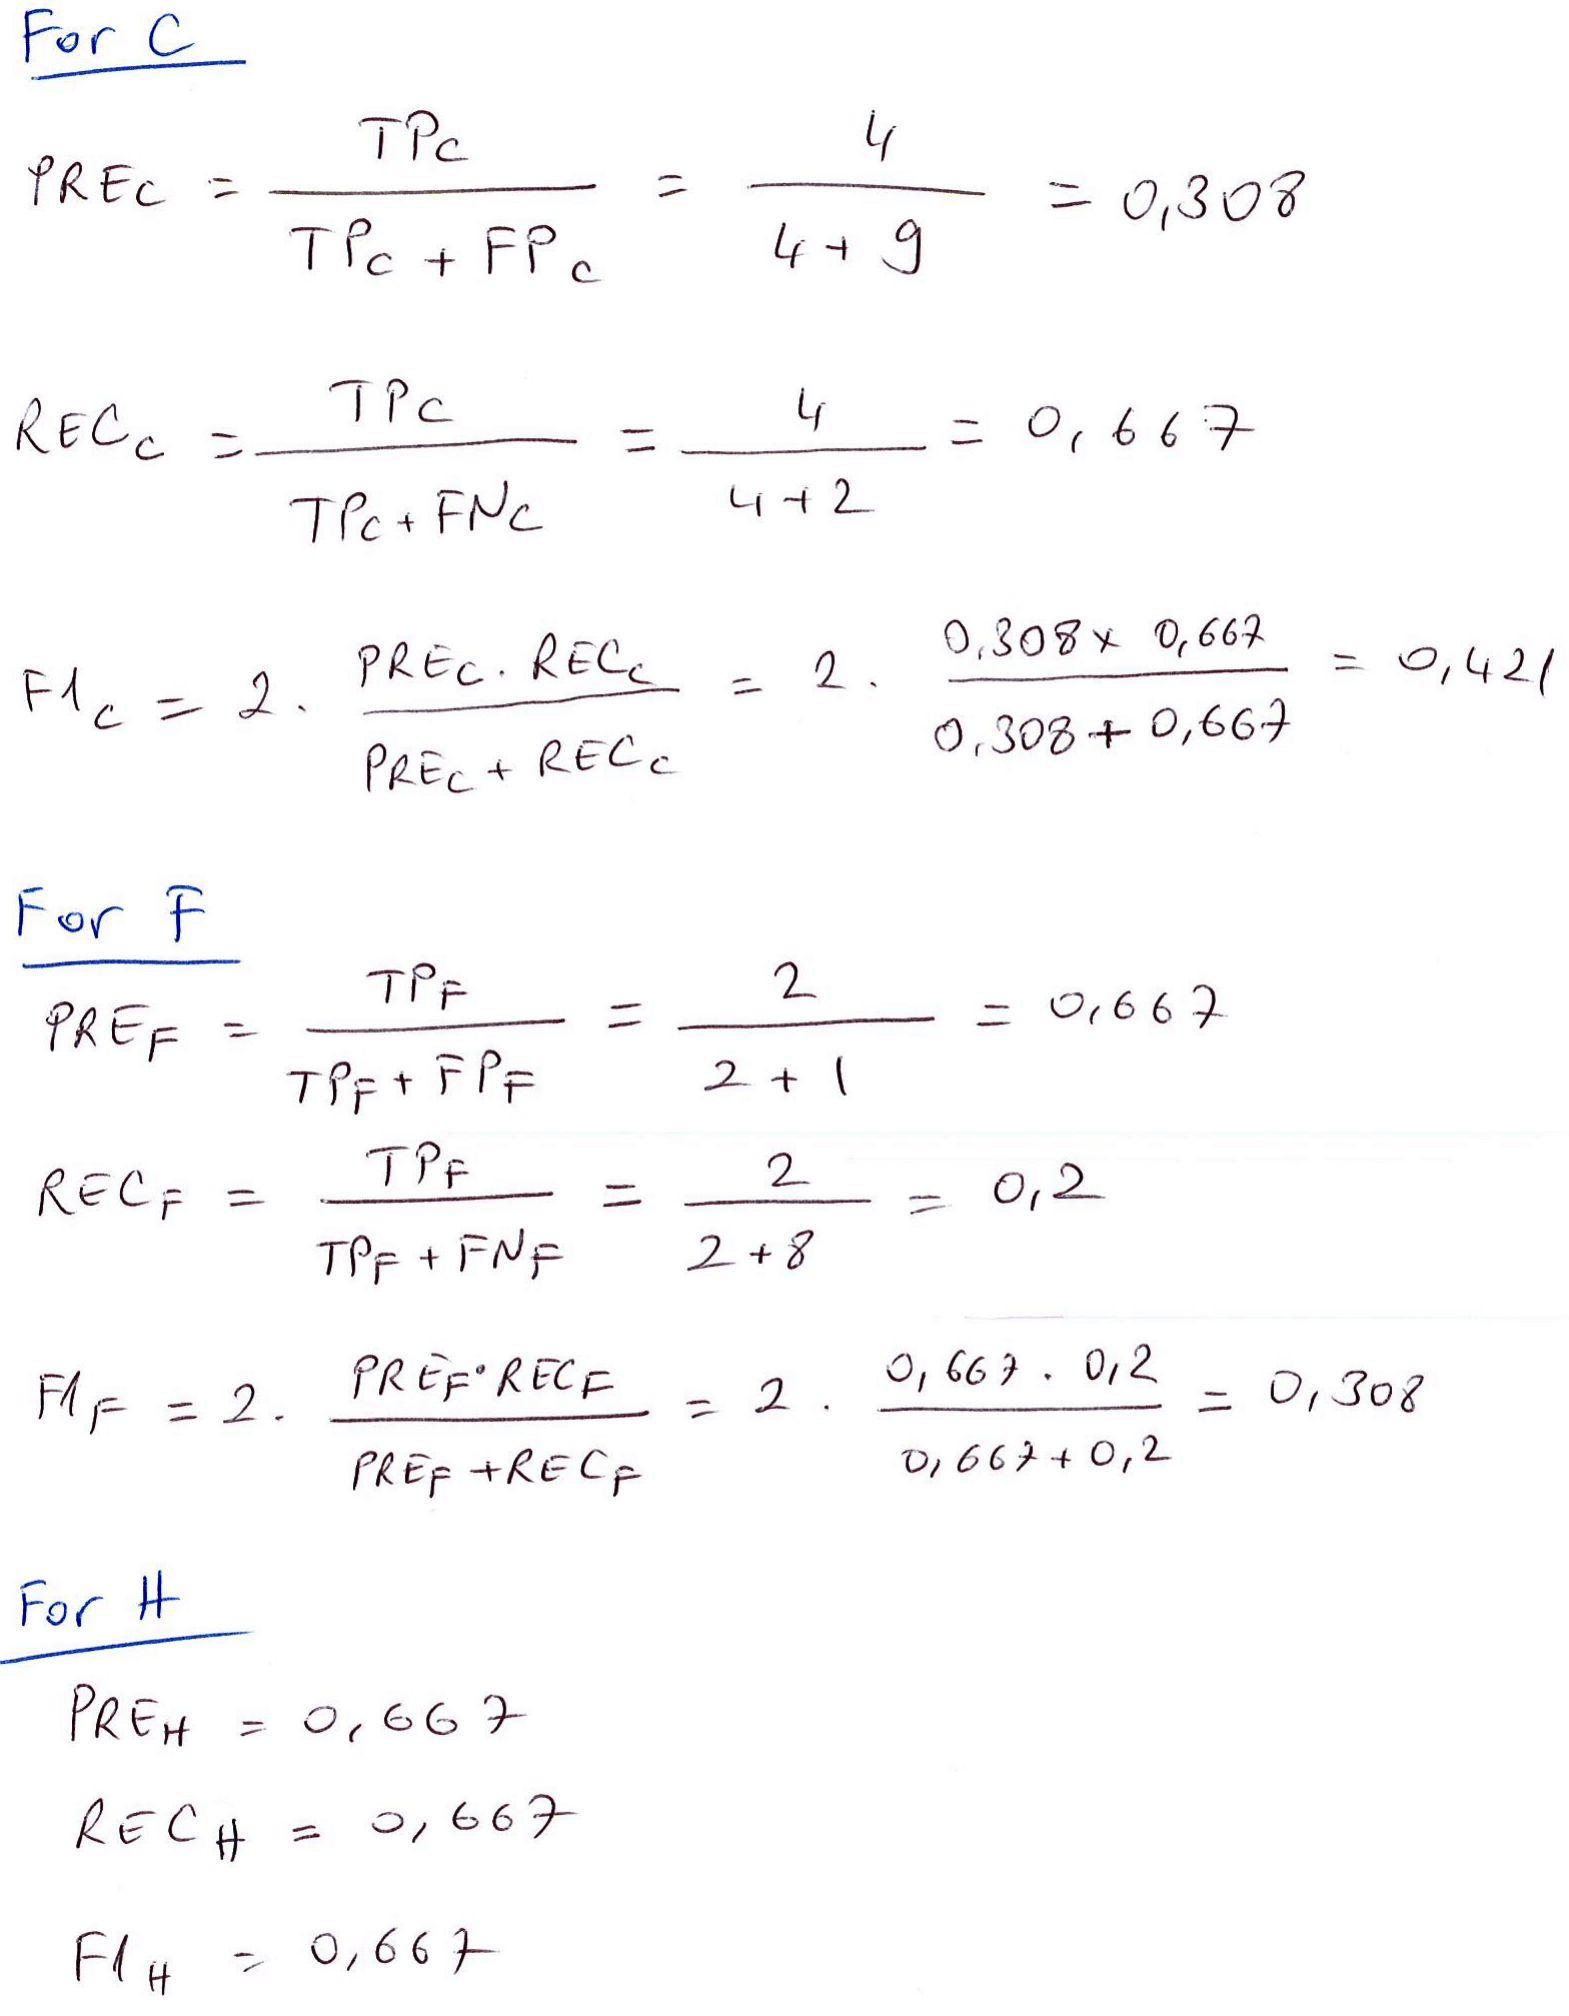 For C
PREC = TPC / TPC + FPC = 4 / 4 + 9 = 0,308
RECC = TPC / TPC + FNC = 4 / 4 + 2 = 0,667
F1C = 2. PREC . RECC / PREC + RECC = 2 . 0,308 x 0,667 / 0,308 + 0,667 = 0,421
For F
PREF = TPF / TPF + FPF = 2 / 2 + 1 = 0,667
RECF = TPF / TPF + FNF = 2 / 2 + 8 = 0,2
F1F = 2. PREF . RECF / PREF + RECF = 2 . 0,667 . 0,2 / 0,667 + 0,2 = 0,308
For H
PREH = 0,667
RECH = 0,667
F1H = 0,667